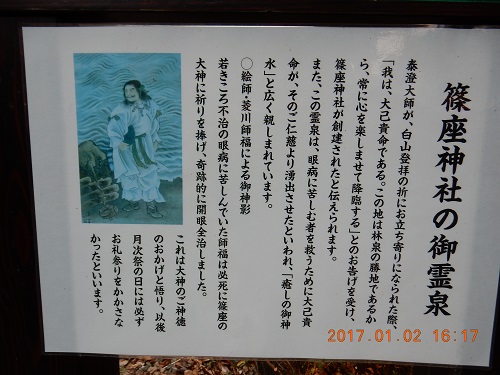 篠座神社の御霊泉
泰澄大師が、白山登拝の折にお立ち寄りになられた際、
「我は、大己貴命である。この地は林泉の勝地であるか
ら、常に心を楽しませて降臨する」とのお告げを受け、
篠座神社が創建されたと伝えられます。
また、この霊泉は、眼病に苦しむ者を救うために大己貴
命が、そのご仁慈より湧出させたといわれ、「癒しの御神
水」と広く親しまれています。
○絵師・菱川師福による御神影
若きころ不治の眼病に苦しんでいた師福は必死に篠座の
大神に祈りを捧げ、奇跡的に開眼全治しました。
これは大神のご神徳
のおかげと悟り、以後
月次祭の日には必ず
お礼参りをかかさな
かったといいます。
2017.01.02 16:17